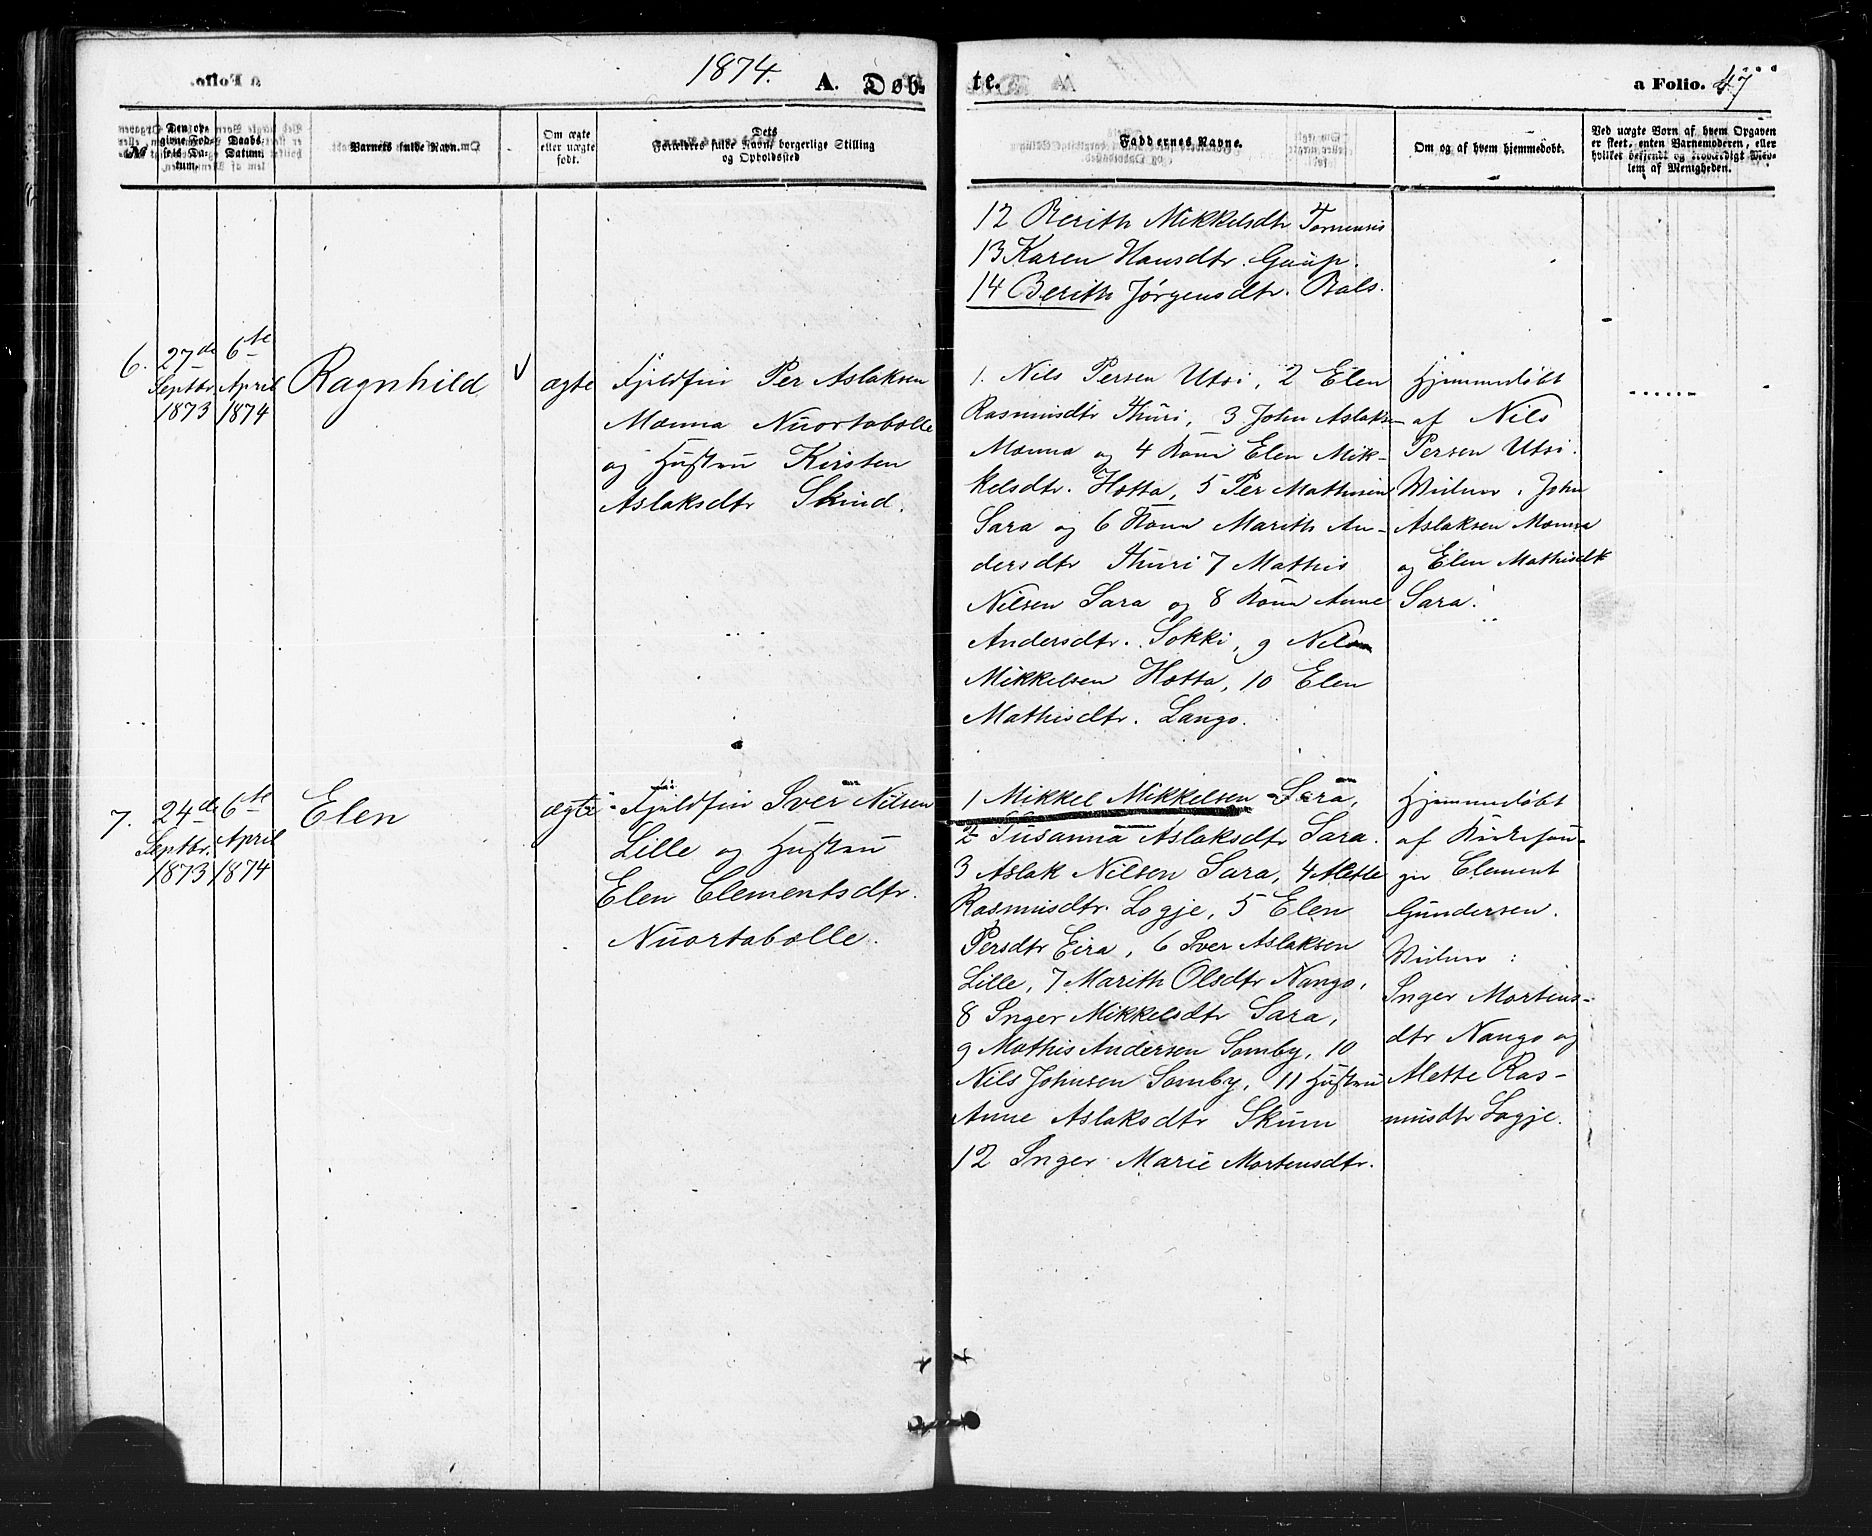 1874. A. Døb
te. a Folio. 47
№
Den opgivne Fødsels Datum.
Daabs-Datum.
Barnets fulde Navn.
Om ægte eller uægte født.
Dets Forældres fulde Navne borgerlige Stilling og Opholdsted
Faddernes Navne.
Om og af hvem hjemmedøbt.
Ved uægte Børn af hvem Opgaven er skeet, enten Barnemoderen, eller hvilket bekjendt og troværdigt Medlem af Menigheden.
12 Berith Mikkelsdtr Tornensis
13 Karen Hansdtr. Gaup.
14 Berith Jørgensdtr. Bals.
6.
27de
Septbr.
1873
6te
April
1874
Ragnhild
ægte
Fjeldfin Per Aslaksen
Mænna Nuortabælle
og Hustru Kirsten
Aslaksdtr
1. Nils Persen Utsi, 2 Elen
Rasmusdtr Thuri, 3 John Aslaksen
Mænna og 4 Kone Elen Mik-
kelsdtr. Hætta, 5 Per Mathisen
Sara og 6 Kone Marith An-
dersdtr Thuri 7 Mathis
Nilsen Sara og 8 Kone Anne
Andersdtr. Sokki, 9 Nils
Mikkelsen Hætta, 10 Elen
Mathisdtr. Lango.
Hjemmedøbt
af Nils
Persen Utsi.
Vidner: John
Aslaksen Mænna
og Elen Mathisdtr
Sara.
7.
24de
Septbr.
1873
6te
April
1874
Elen
ægte
Fjeldfin Iver Nilsen
Lille og Hustru
Elen Clementsdtr.
Nuortabælle.
1 Mikkel Mikkelsen Sara,
2 Susanna Aslaksdtr Sara.
3 Aslak Nilsen Sara, 4 Alette
Rasmusdtr. Logje, 5 Elen
Persdtr Eira, 6 Iver Aslaksen
Lille, 7 Marith Olsdtr Nango,
8 Inger Mikkelsdtr Sara,
9 Mathis Andersen Somby, 10
Nils Johnsen Somby, 11 Hustru
Anne Aslaksdtr Skum
12 Inger Marie Mortensdtr.
Hjemmedøbt
af Kirkesan-
ger Clement
Gundersen.
Vidner:
Inger Mortens-
dtr Nango og
Alette Ras-
musdtr Logje.